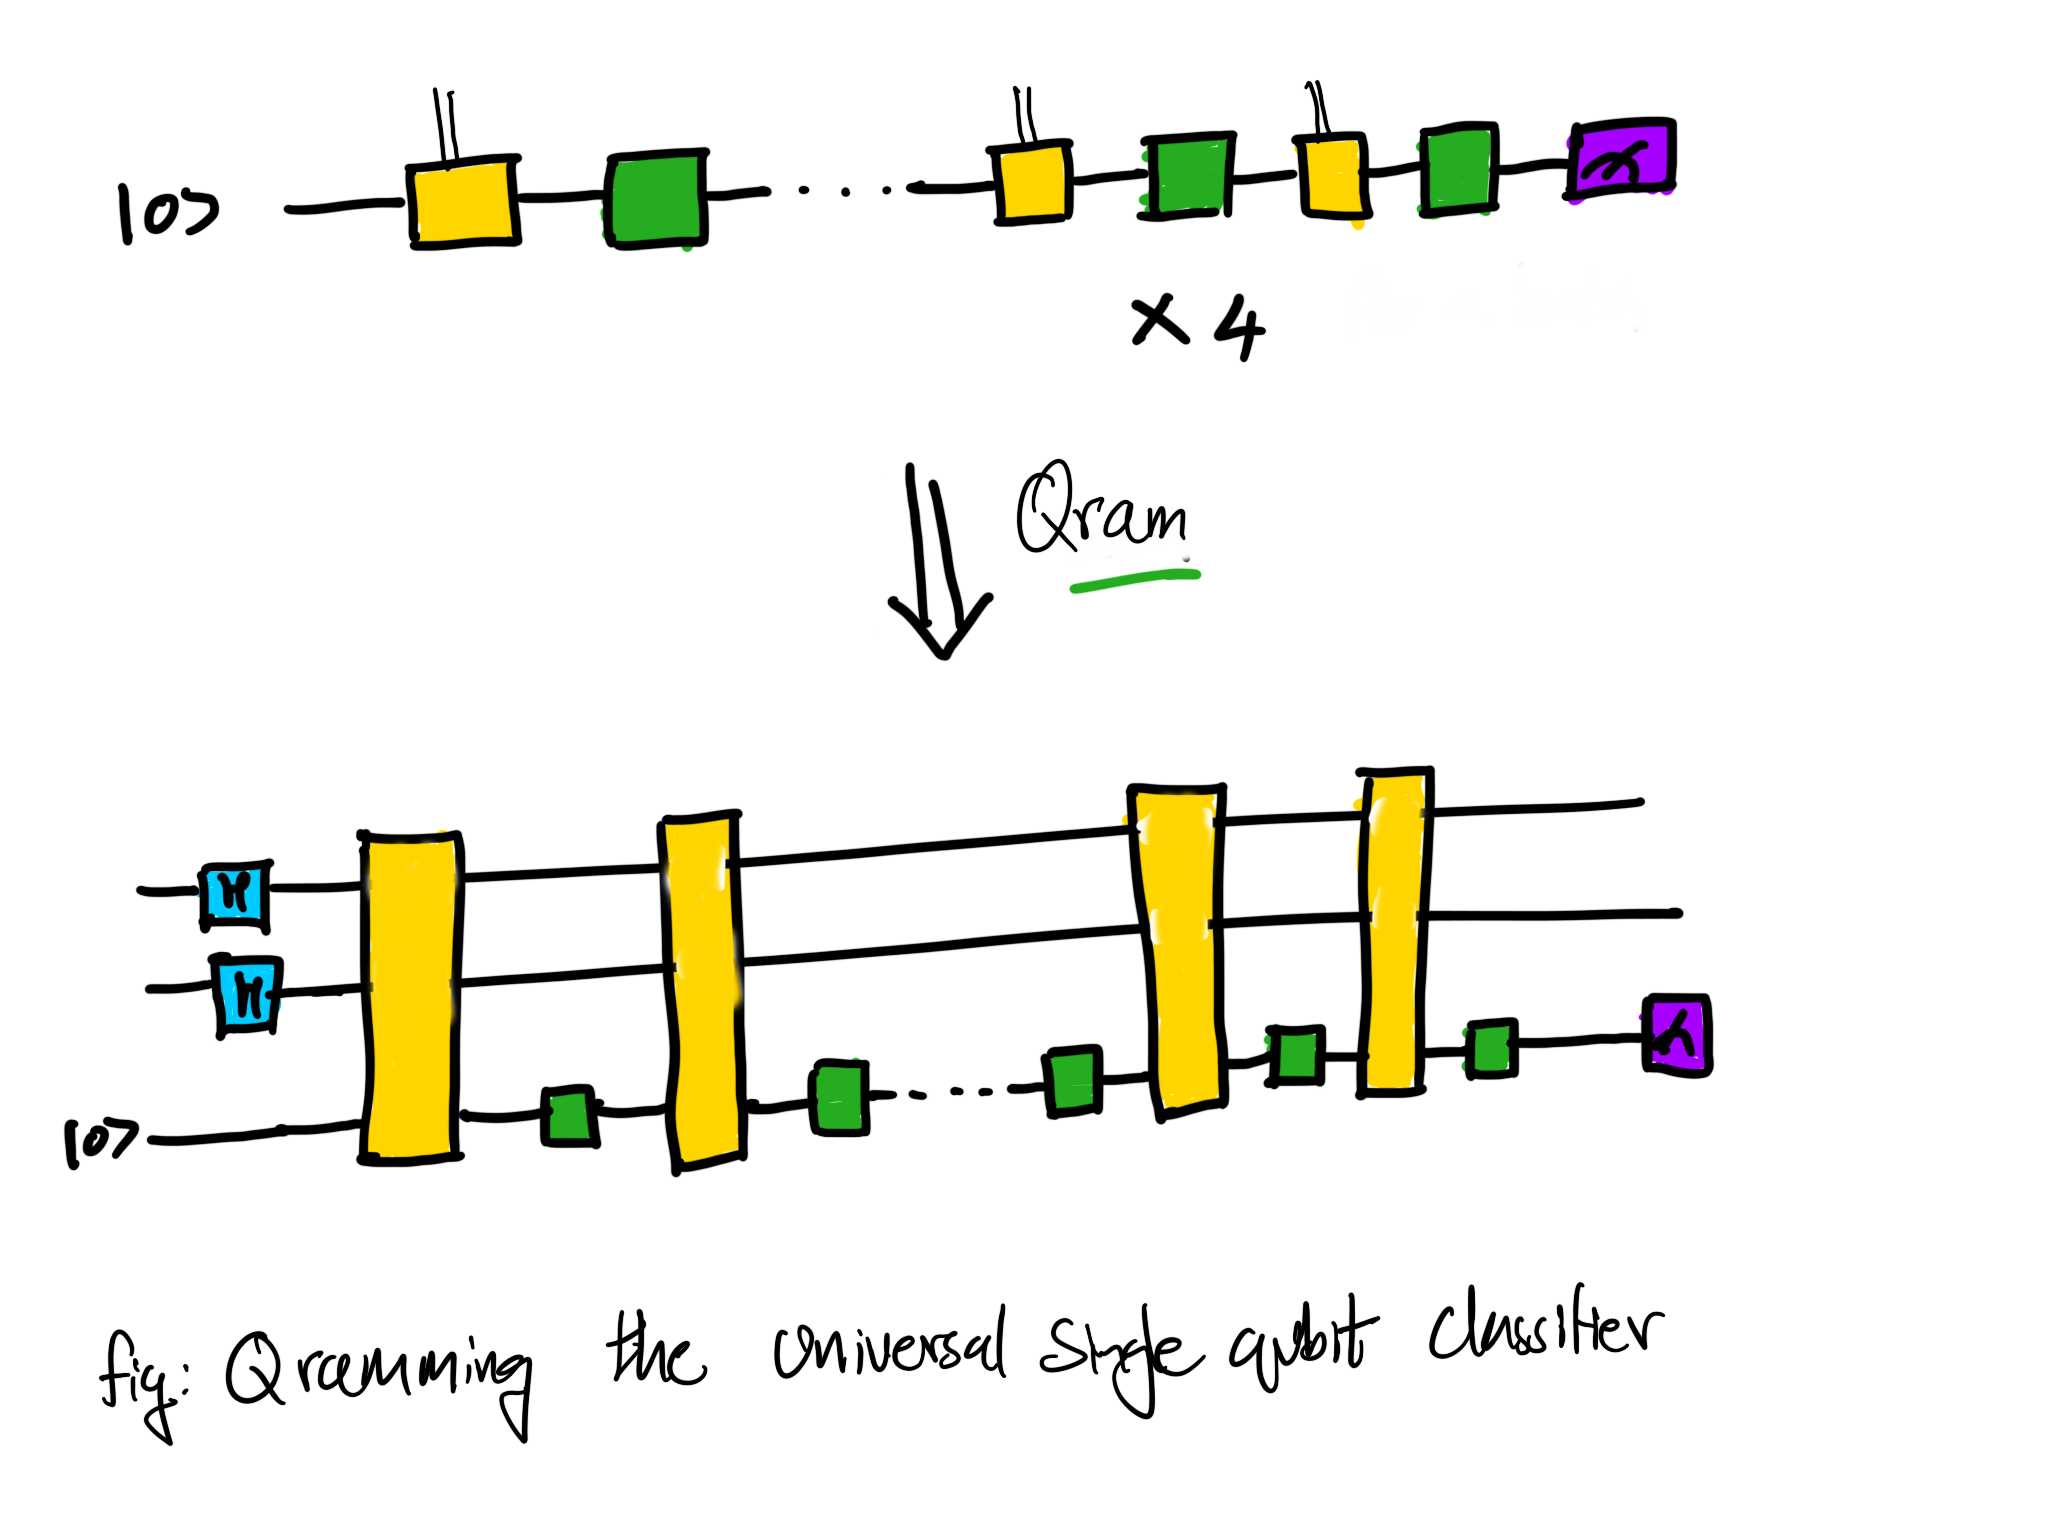 |0>
× 4
Qram
H
H
|0>
fig: Qramming the Universal Single qubit classifier